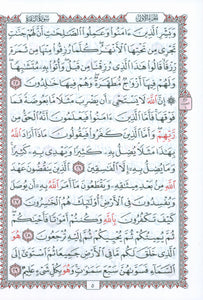 وَبَشِّرِ الَّذِينَ ءَامَنُوا وَعَمِلُوا الصَّالِحَاتِ أَنَّ لَهُمْ جَنَّاتٍ
تَجْرِي مِن تَحْتِهَا الْأَنْهَارُ كُلَّمَا رُزِقُوا مِنْهَا مِن ثَمَرَةٍ
رِّزْقًا قَالُوا هَٰذَا الَّذِي رُزِقْنَا مِن قَبْلُ وَأُتُوا بِهِ مُتَشَابِهًا
وَلَهُمْ فِيهَا أَزْوَاجٌ مُّطَهَّرَةٌ وَهُمْ فِيهَا خَالِدُونَ ٢٥
إِنَّ اللَّهَ لَا يَسْتَحْيِي أَن يَضْرِبَ مَثَلًا مَّا بَعُوضَةً فَمَا
فَوْقَهَا فَأَمَّا الَّذِينَ ءَامَنُوا فَيَعْلَمُونَ أَنَّهُ الْحَقُّ مِن
رَّبِّهِمْ وَأَمَّا الَّذِينَ كَفَرُوا فَيَقُولُونَ مَاذَا أَرَادَ اللَّهُ
بِهَٰذَا مَثَلًا يُضِلُّ بِهِ كَثِيرًا وَيَهْدِي بِهِ كَثِيرًا
وَمَا يُضِلُّ بِهِ إِلَّا الْفَاسِقِينَ ٢٦ الَّذِينَ يَنقُضُونَ عَهْدَ
اللَّهِ مِن بَعْدِ مِيثَاقِهِ وَيَقْطَعُونَ مَا أَمَرَ اللَّهُ بِهِ أَن يُوصَلَ
وَيُفْسِدُونَ فِي الْأَرْضِ أُولَٰئِكَ هُمُ الْخَاسِرُونَ ٢٧
كَيْفَ تَكْفُرُونَ بِاللَّهِ وَكُنتُمْ أَمْوَاتًا فَأَحْيَاكُمْ
ثُمَّ يُمِيتُكُمْ ثُمَّ يُحْيِيكُمْ ثُمَّ إِلَيْهِ تُرْجَعُونَ ٢٨ هُوَ
الَّذِي خَلَقَ لَكُم مَّا فِي الْأَرْضِ جَمِيعًا ثُمَّ اسْتَوَىٰ إِلَى
السَّمَاءِ فَسَوَّاهُنَّ سَبْعَ سَمَاوَاتٍ وَهُوَ بِكُلِّ شَيْءٍ عَلِيمٌ ٢٩
٥